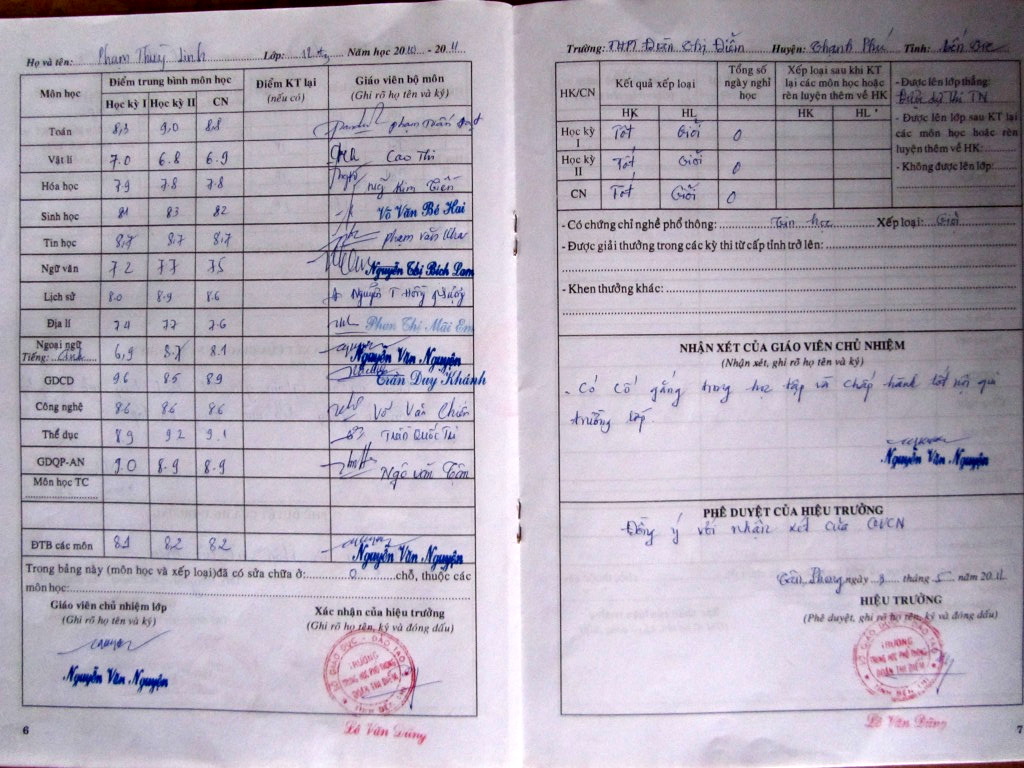 Họ và tên: Phạm Thuỳ Linh Lớp: 12 Năm học 2010 - 2011
Môn học Điểm trung bình môn học Điểm KT lại (nếu có) Giáo viên bộ môn (Ghi rõ họ tên và ký)
Học kỳ I Học kỳ II CN
Toán 8,3 9,0 8.8 Phạm Tuấn
Vật lí 7.0 6.8 6.9 Cao Thi
Hóa học 7.9 7.8 7.8 Ng Kim Tiến
Sinh học 81 83 82 Võ Văn Bé Hai
Tin học 8,7 8,7 8,7 phạm văn
Ngữ văn 72 77 75 Nguyễn Thị Bích Lam
Lịch sử 8.0 8.9 8.6 Nguyễn T Hồng
Địa lí 74 77 7.6 Phan Thi Mãi Em
Ngoại ngữ
Tiếng: Anh 6,9 8.7 8.1 Nguyễn Văn Nguyện
GDCD 9.6 8.5 8.9 Trần Duy Khánh
Công nghệ 8.6 8.6 8.6 Võ Văn Chiến
Thể dục 8.9 9.2 9.1 Trần Quốc Thi
GDQP-AN 9.0 8.9 8.9 Ngô văn Tâm
Môn học TC
ĐTB các môn 8.1 8.2 8.2 Nguyễn Văn Nguyện
Trong bảng này (môn học và xếp loại)đã có sửa chữa ở: 0 chỗ, thuộc các
môn học:
Giáo viên chủ nhiệm lớp
(Ghi rõ họ tên và ký)
Nguyễn Văn Nguyện
Xác nhận của hiệu trưởng
(Ghi rõ họ tên, ký và đóng dấu)
SỞ GIÁO DỤC - ĐÀO TẠO
TRƯỜNG
TRUNG HỌC PHỔ THÔNG
ĐOÀN THỊ ĐIỂM
TỈNH BẾN TRE
Lê Văn Dũng
6
Trường: THPT Đoàn Thị Điểm Huyện: Thạnh Phú Tỉnh: Bến Tre
HK/CN Kết quả xếp loại Tổng số ngày nghỉ học Xếp loại sau khi KT lại các môn học hoặc rèn luyện thêm về HK
HK HL HK HL
Học kỳ I Tốt Giỏi 0
Học kỳ II Tốt Giỏi 0
CN Tốt Giỏi 0
- Được lên lớp thẳng:
Được dự Thi TN
- Được lên lớp sau KT lại
các môn học hoặc rèn
luyện thêm về HK:
- Không được lên lớp:
- Có chứng chỉ nghề phổ thông: Tin học Xếp loại: Giỏi
- Được giải thưởng trong các kỳ thi từ cấp tỉnh trở lên:
- Khen thưởng khác:
NHẬN XÉT CỦA GIÁO VIÊN CHỦ NHIỆM
(Nhận xét, ghi rõ họ tên và ký)
- Có cố gắng trong học tập và chấp hành tốt nội qui
trường lớp
Nguyễn Văn Nguyện
PHÊ DUYỆT CỦA HIỆU TRƯỞNG
Đồng ý với nhận xét của GVCN
Tân Phong ngày 3 tháng 5 năm 2011
HIỆU TRƯỞNG
(Phê duyệt, ghi rõ họ tên, ký và đóng dấu)
SỞ GIÁO DỤC - ĐÀO TẠO
TRƯỜNG
TRUNG HỌC PHỔ THÔNG
ĐOÀN THỊ ĐIỂM
TỈNH BẾN TRE
Lê Văn Dũng
7